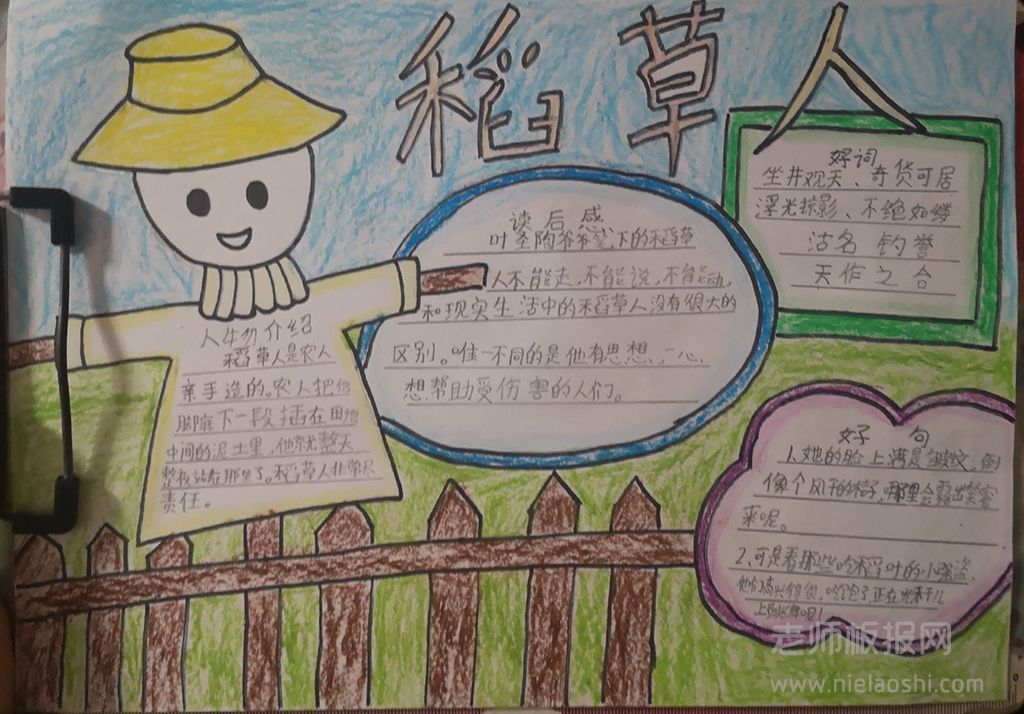 稻草人
好词
坐井观天、奇货可居
浮光掠影、不绝如缕
沽名 钓誉
天作之合
读后感
叶圣陶爷爷笔下的稻草
人不能走,不能说,不能动,
和现实生活中的稻草人没有很大的
区别。唯一不同的是他有思想,一心
想帮助受伤害的人们。
人物介绍
稻草人是农人
亲手造的。农人把他
脚底下一段插在田地
中间的泥土里,他就整天
整夜站在那里了。稻草人非常尽
责任。
好句
1.她的脸上满是皱纹,倒
像个风干的橘子,哪里会露出笑容
来呢。
2、可是看那些吃稻叶的小强盗,
他们高兴得很,吃饱了,正在光秃秃
上跳舞呢!
老师板报网
www.nielaoshi.com